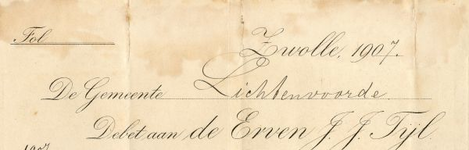 Fol
Zwolle, 1907.
De Gemeente Lichtenvoorde
Debet aan de Erven J. J. Tijl
1907